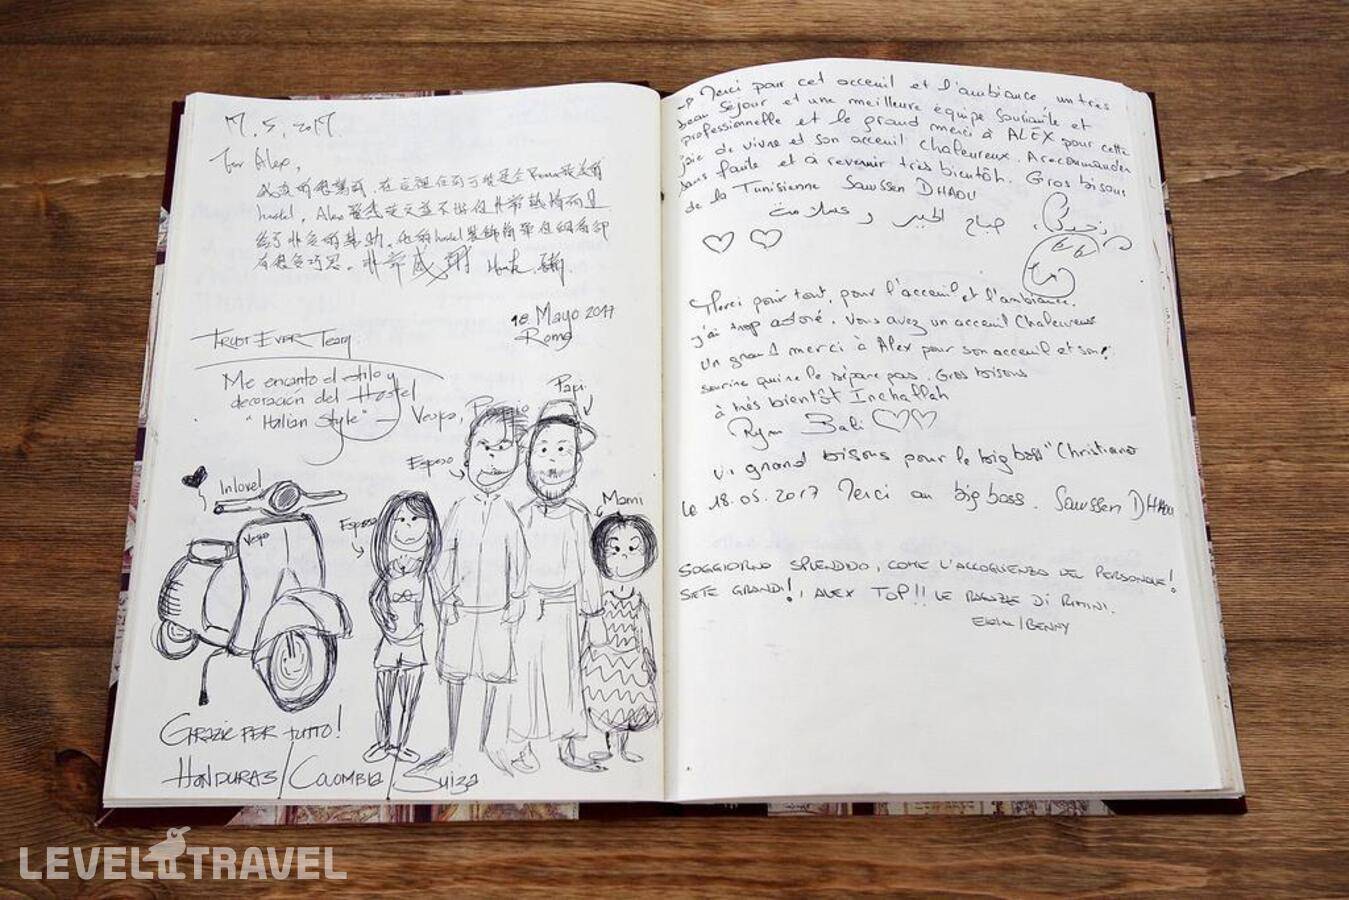 17.5.2017
For Alex,
hostel, Alex 雖然英文並不好但非常熱情而且
給了非常多的幫助。他的hostel裝飾簡單但細看卻
有很多巧思。非常感謝
18 Mayo 2017
Roma
TRUST EVER TEAM
Me encanto el stilo y
decoracion del Hostel
"Italian Style"
Vespa,
Papi
Esposo
Mami
Esposa
In lovel
Vespa
GRAZIE PER TUTTO!
HONDURAS/COLOMBIA/Suiza
→ Merci pour cet acceuil et l'ambiance, un très
beau séjour et une meilleure équipe souriante et
professionnelle et le grand merci à ALEX pour cette
joie de vivre et son acceuil chaleureux. A recommander
sans faute et à revenir très bientôt. Gros bisous
de la Tunisienne Sawssen DHAOU
صباح الخير و
Merci pour tout, pour l'acceuil et l'ambiance.
j'ai trop adoré. Vous avez un acceuil Chaleureux
Un grand merci à Alex pour son acceuil et son
sourire qui ne le sépare pas. Gros bisous
à très bientôt Inchallah
Rym Bali
Un grand bisous pour le big boss "Christiano
Le 18.05.2017 Merci au big boss. Sawssen DHAOU
SOGGIORNO SPLENDIDO, COME L'ACCOGLIENZA DEL PERSONALE!
SIETE GRANDI!, ALEX TOP!! LE RAGAZZE DI RIMINI.
BENNY
LEVEL TRAVEL